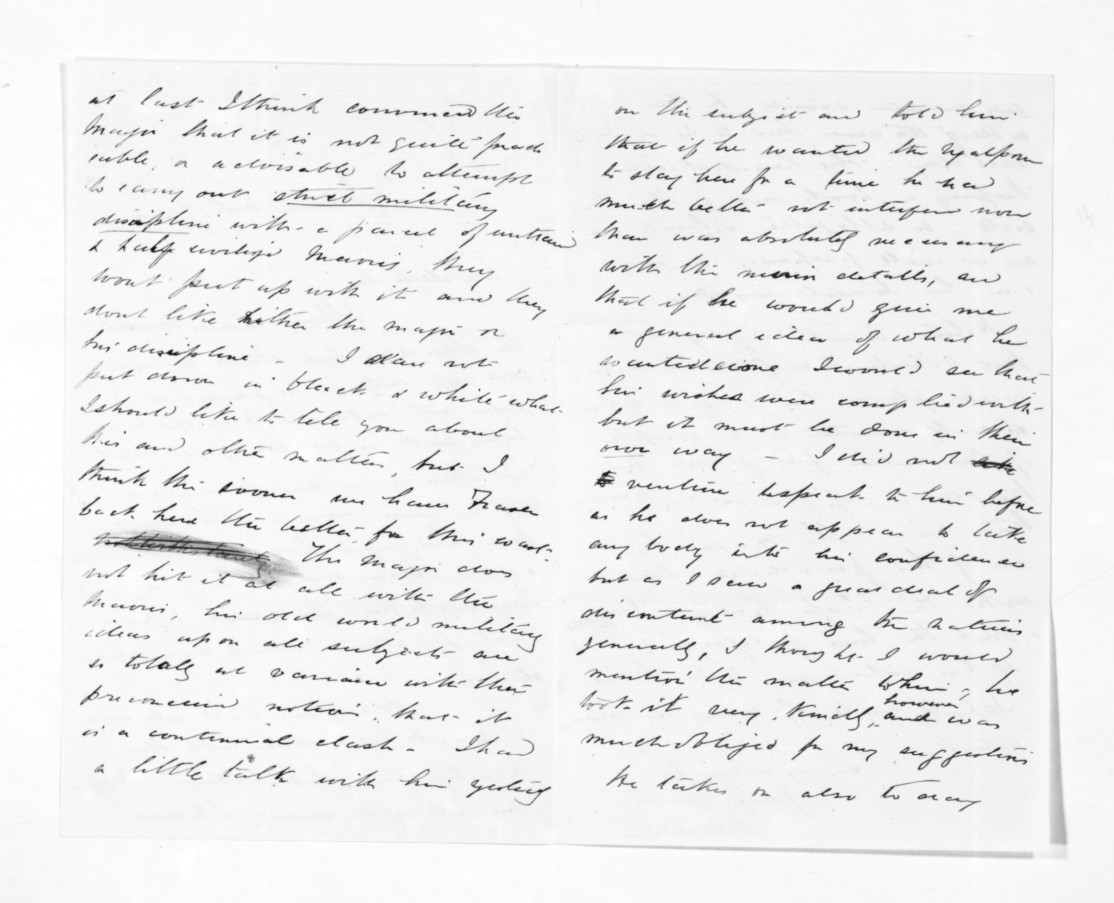 at last I think convinced the
Major that it is not quite prac
icable, or advisable to attempt
to carry out strict military
discipline with a parcel of untrain
& half civilized Maoris. They
wont put up with it and they
dont like either the major or
his discipline - I dare not
put down in black & white what
I should like to tell you about
this and other matters, but I
think the sooner we have Fraser
back here the better for this coast.
The major does
not hit it at all with the
Maoris, his old world military
ideas upon all subjects are
so totally at variance with their
preconceived notions that it
is a continual clash - I had
a little talk with him yesterday
on the subject and told him
that if he wanted the Ngatiporou
to stay here for a time he had
much better not interfere more
than was absolutely necessary
with the minor details, and
that if he would give me
a general idea of what he
wanted done I would see that
his wishes were complied with
but it must be done in their
own way - I did not
venture to speak to him before
as he does not appear to take
any body into his confidence
but as I saw a great deal of
discontent among the natives
generally, I thought I would
mention the matter to him, he
took it very kindly, however and was
much obliged for my suggestions
He takes on also to day